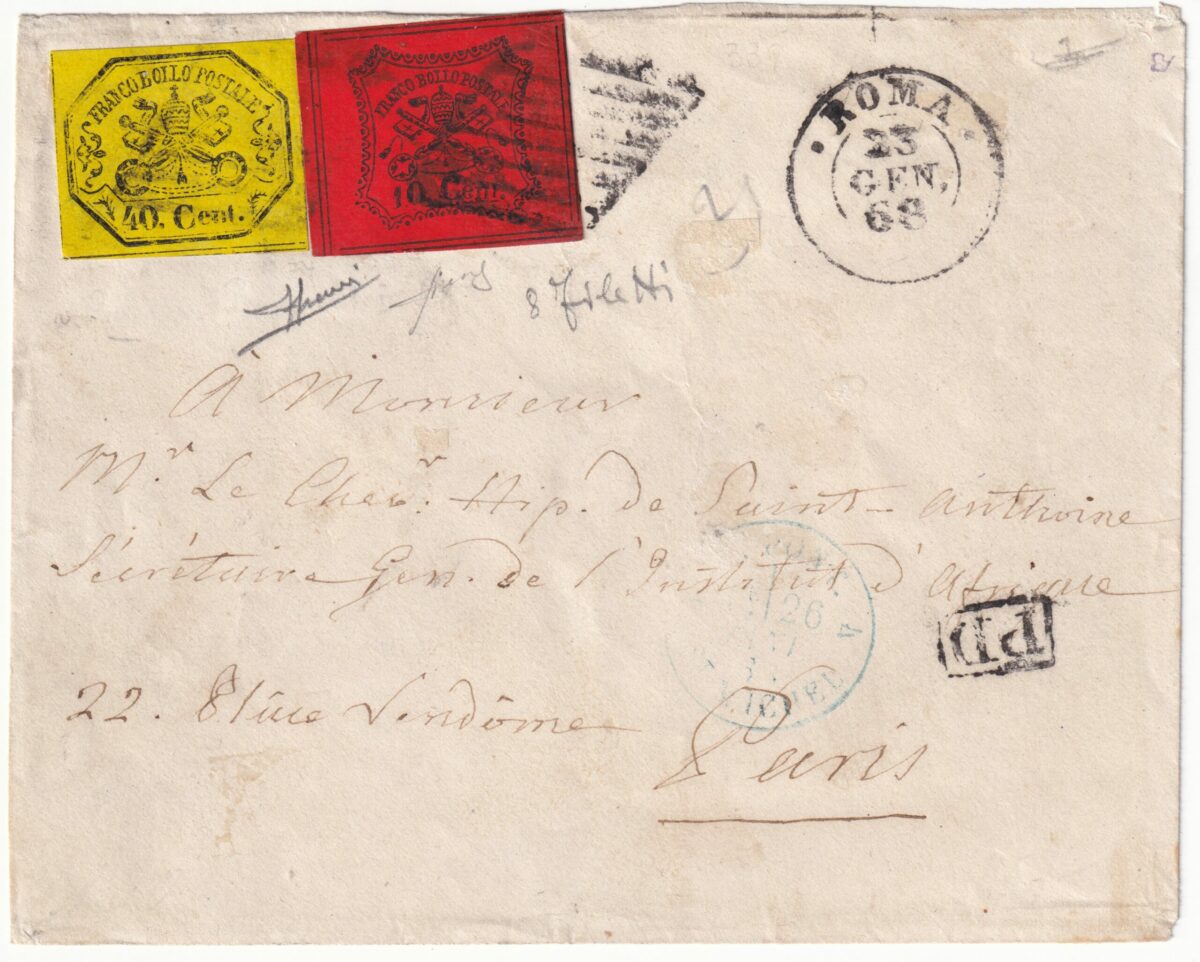 FRANCO BOLLO POSTALE
40. Cent.
FRANCO BOLLO POSTALE
10 Cent.
ROMA
23
GEN.
68
21
8 Filetti
A Monsieur
Mr. Le Chevr. Hip. de Saint-Anthoine
Sécrétaire Gen. de l'Institut d'Afrique
26
PD
22. Place Vendôme
Paris